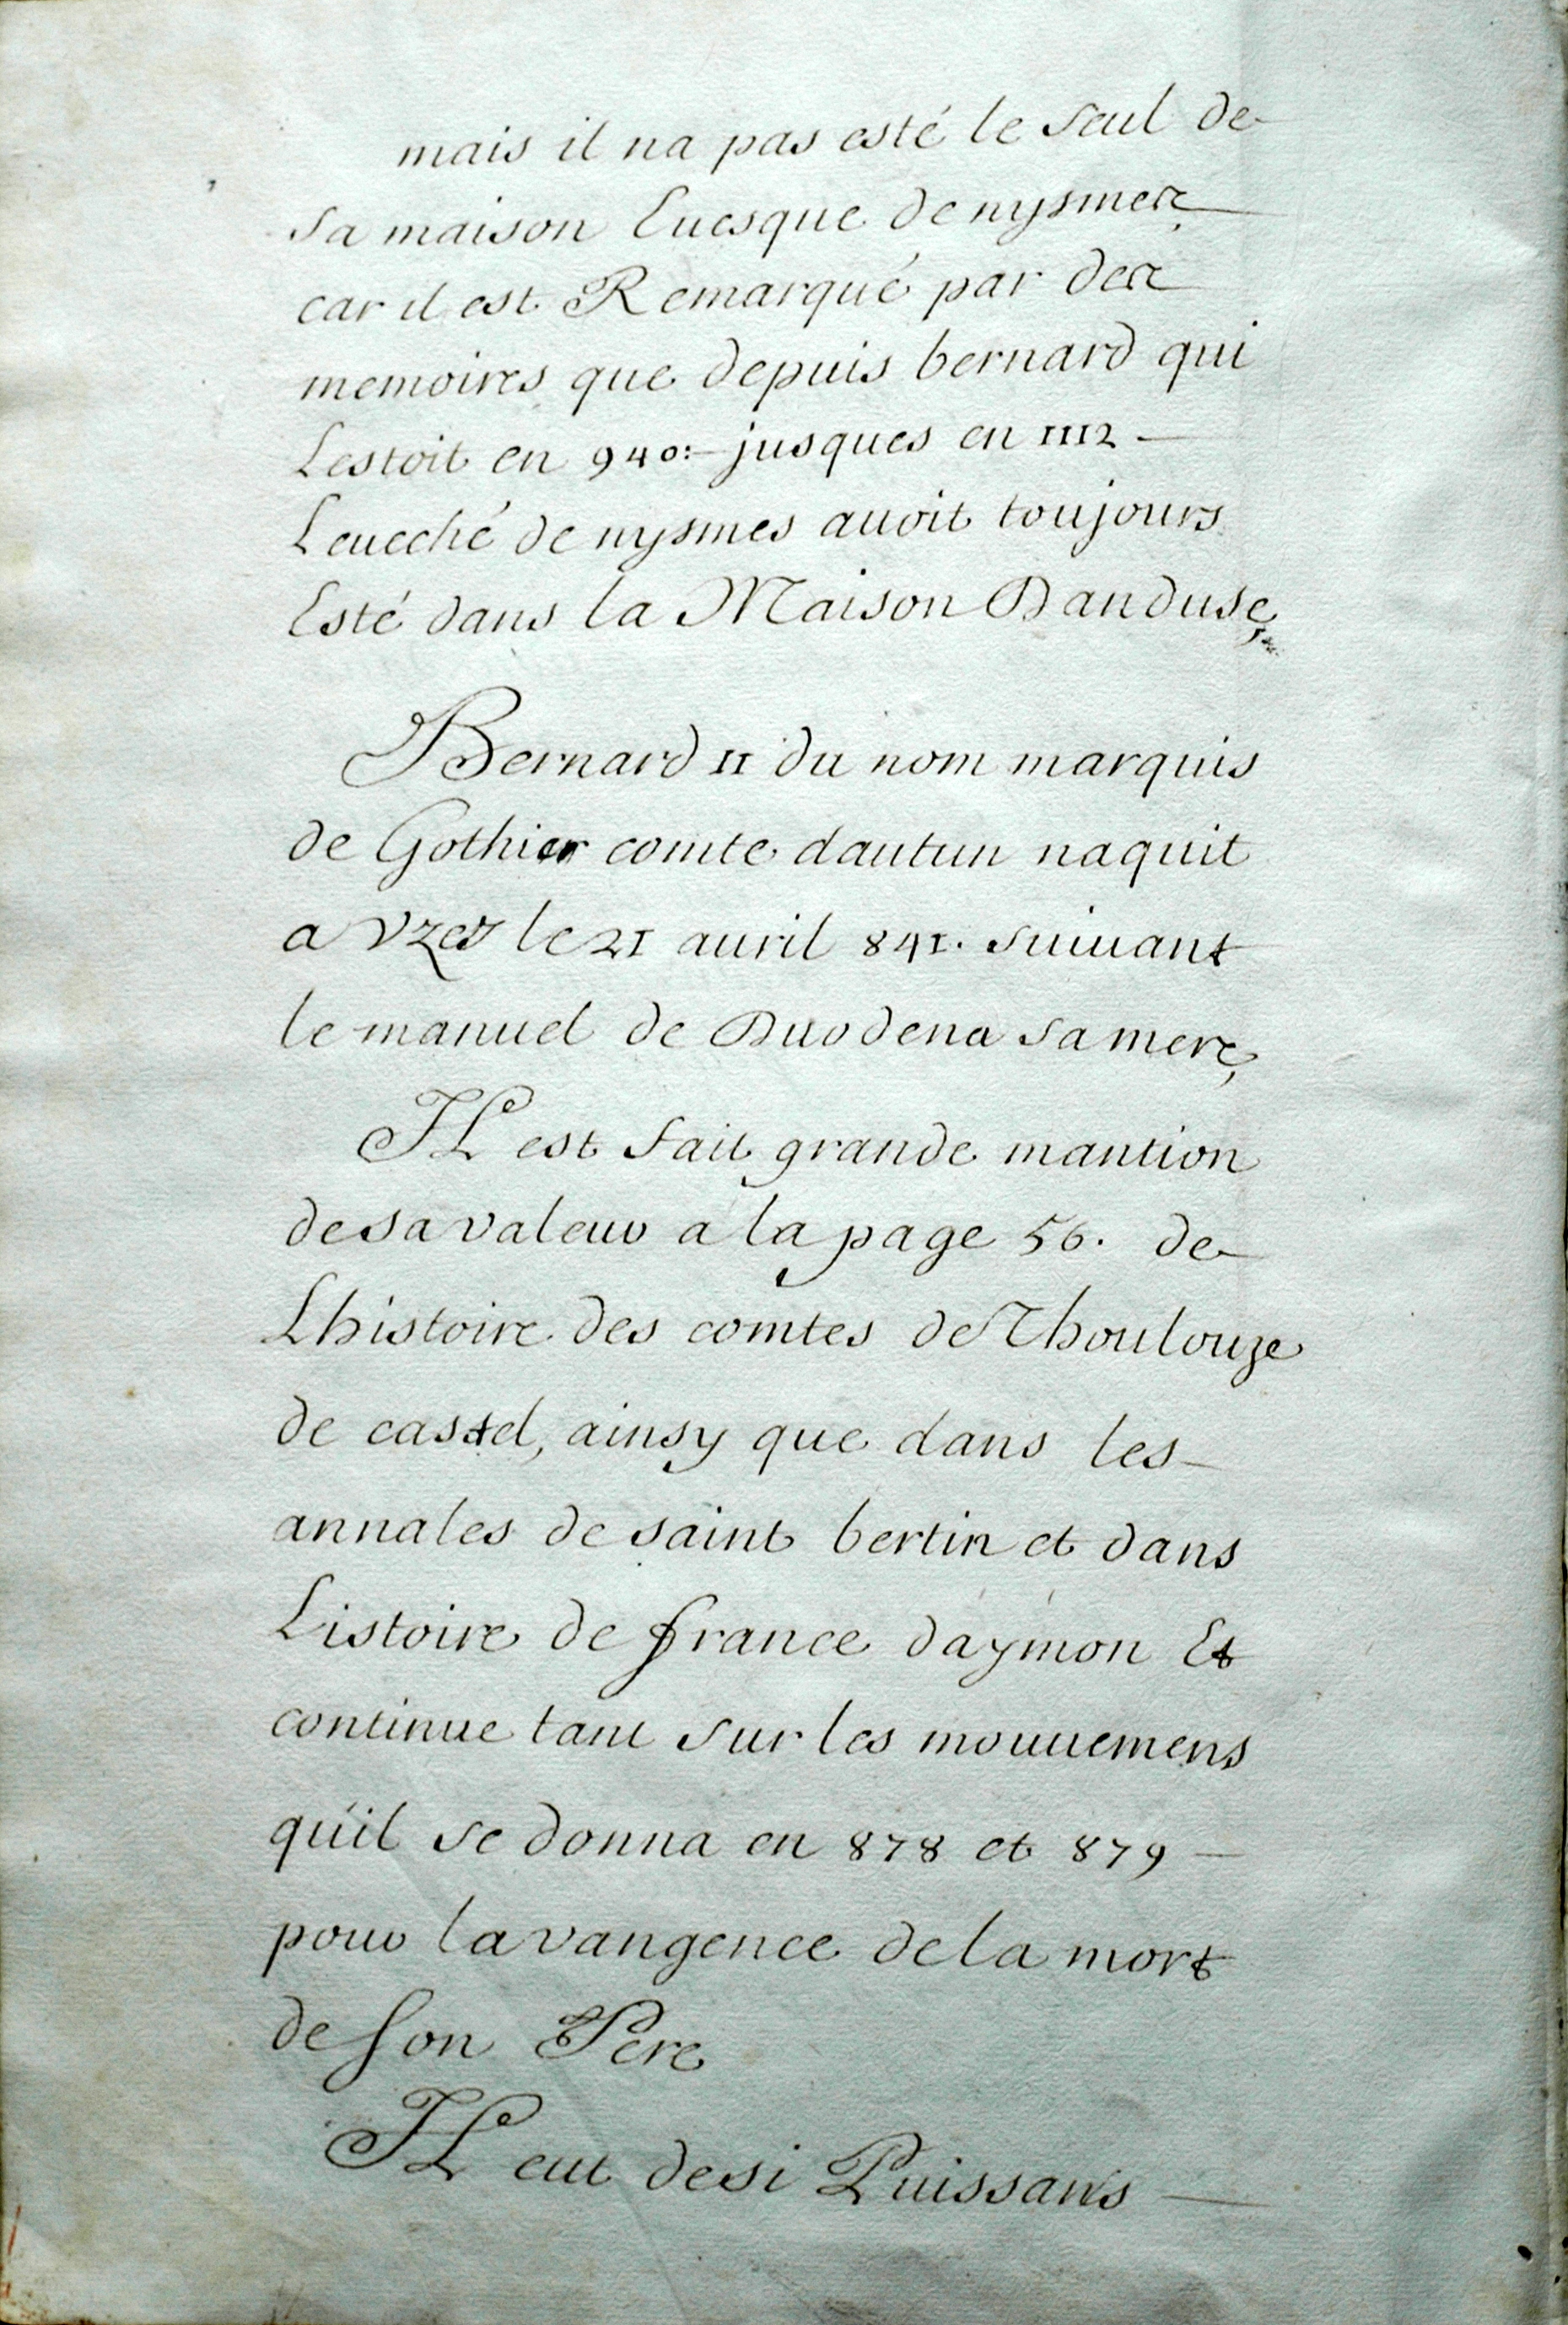 mais il na pas esté le seul de
sa maison Euesque de nysmes
car il est Remarqué par des
memoires que depuis bernard qui
Lestoit en 940: jusques en 1112
Leueché de nysmes auoit toujours
Esté dans la Maison Danduse,
Bernard II du nom marquis
de Gothier comte dautun naquit
a Vzes le 21 auril 841. suiuant
le manuel de Duodena sa mere,
IL est fait grande mantion
de sa valeur a la page 56. de
Lhistoire des comtes de Thoulouze
de castel, ainsy que dans les
annales de saint bertin et dans
Listoire de france daymon Et
continue tant sur les mouuemens
quil se donna en 878 et 879
pour la vangence de la mort
de son Pere
IL eut de si Puissans